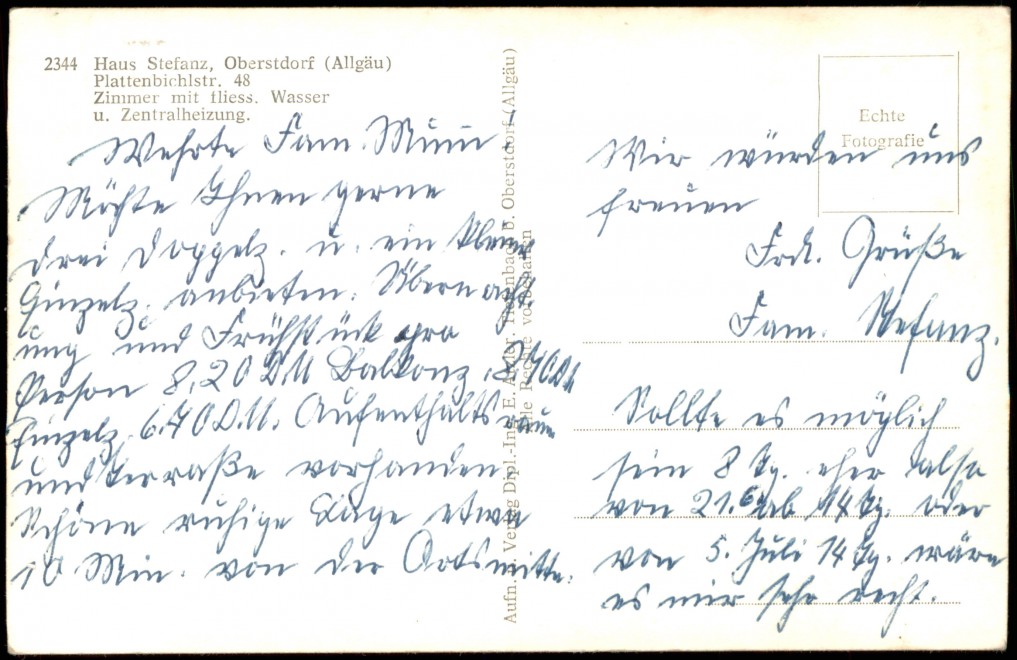 2344 Haus Stefanz, Oberstdorf (Allgäu)
Plattenbichlstr. 48
Zimmer mit fliess. Wasser
u. Zentralheizung.
Wehrte Fam.
Möchte Ihnen gerne
drei Doppelz. u. ein kleines
Einzelz. anbieten. Übernacht
ung und Frühstück pro
Person 8,20 DM Balkonz. 8,70 DM
Einzelz. 6.70 DM. Aufenthaltsraum
und Terraße vorhanden
Schöne ruhige Lage etwa
10 Min. von der Ortsmitte.
Aufn. u. Verlag Dipl.-Ing. E. b. Oberstdorf (Allgäu)
Alle Rechte vorbehalten
Echte
Fotografie
Wir würden uns
freuen
Frdl. Grüße
Fam. Stefanz.
Sollte es möglich
sein 8 Tg. eher also
von 21.6. ab 14 Tg. oder
von 5. Juli 14 Tg. wäre
es mir sehr recht.